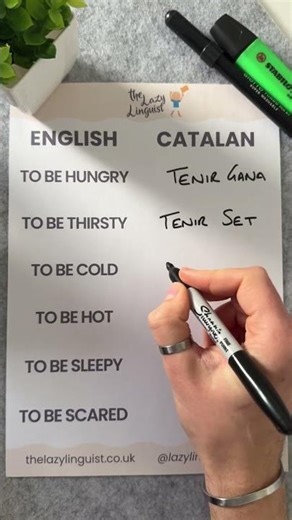 the
Lazy
Linguist
ENGLISH CATALAN
TO BE HUNGRY TENIR GANA
TO BE THIRSTY TENIR SET
TO BE COLD
TO BE HOT
TO BE SLEEPY
TO BE SCARED
thelazylinguist.co.uk